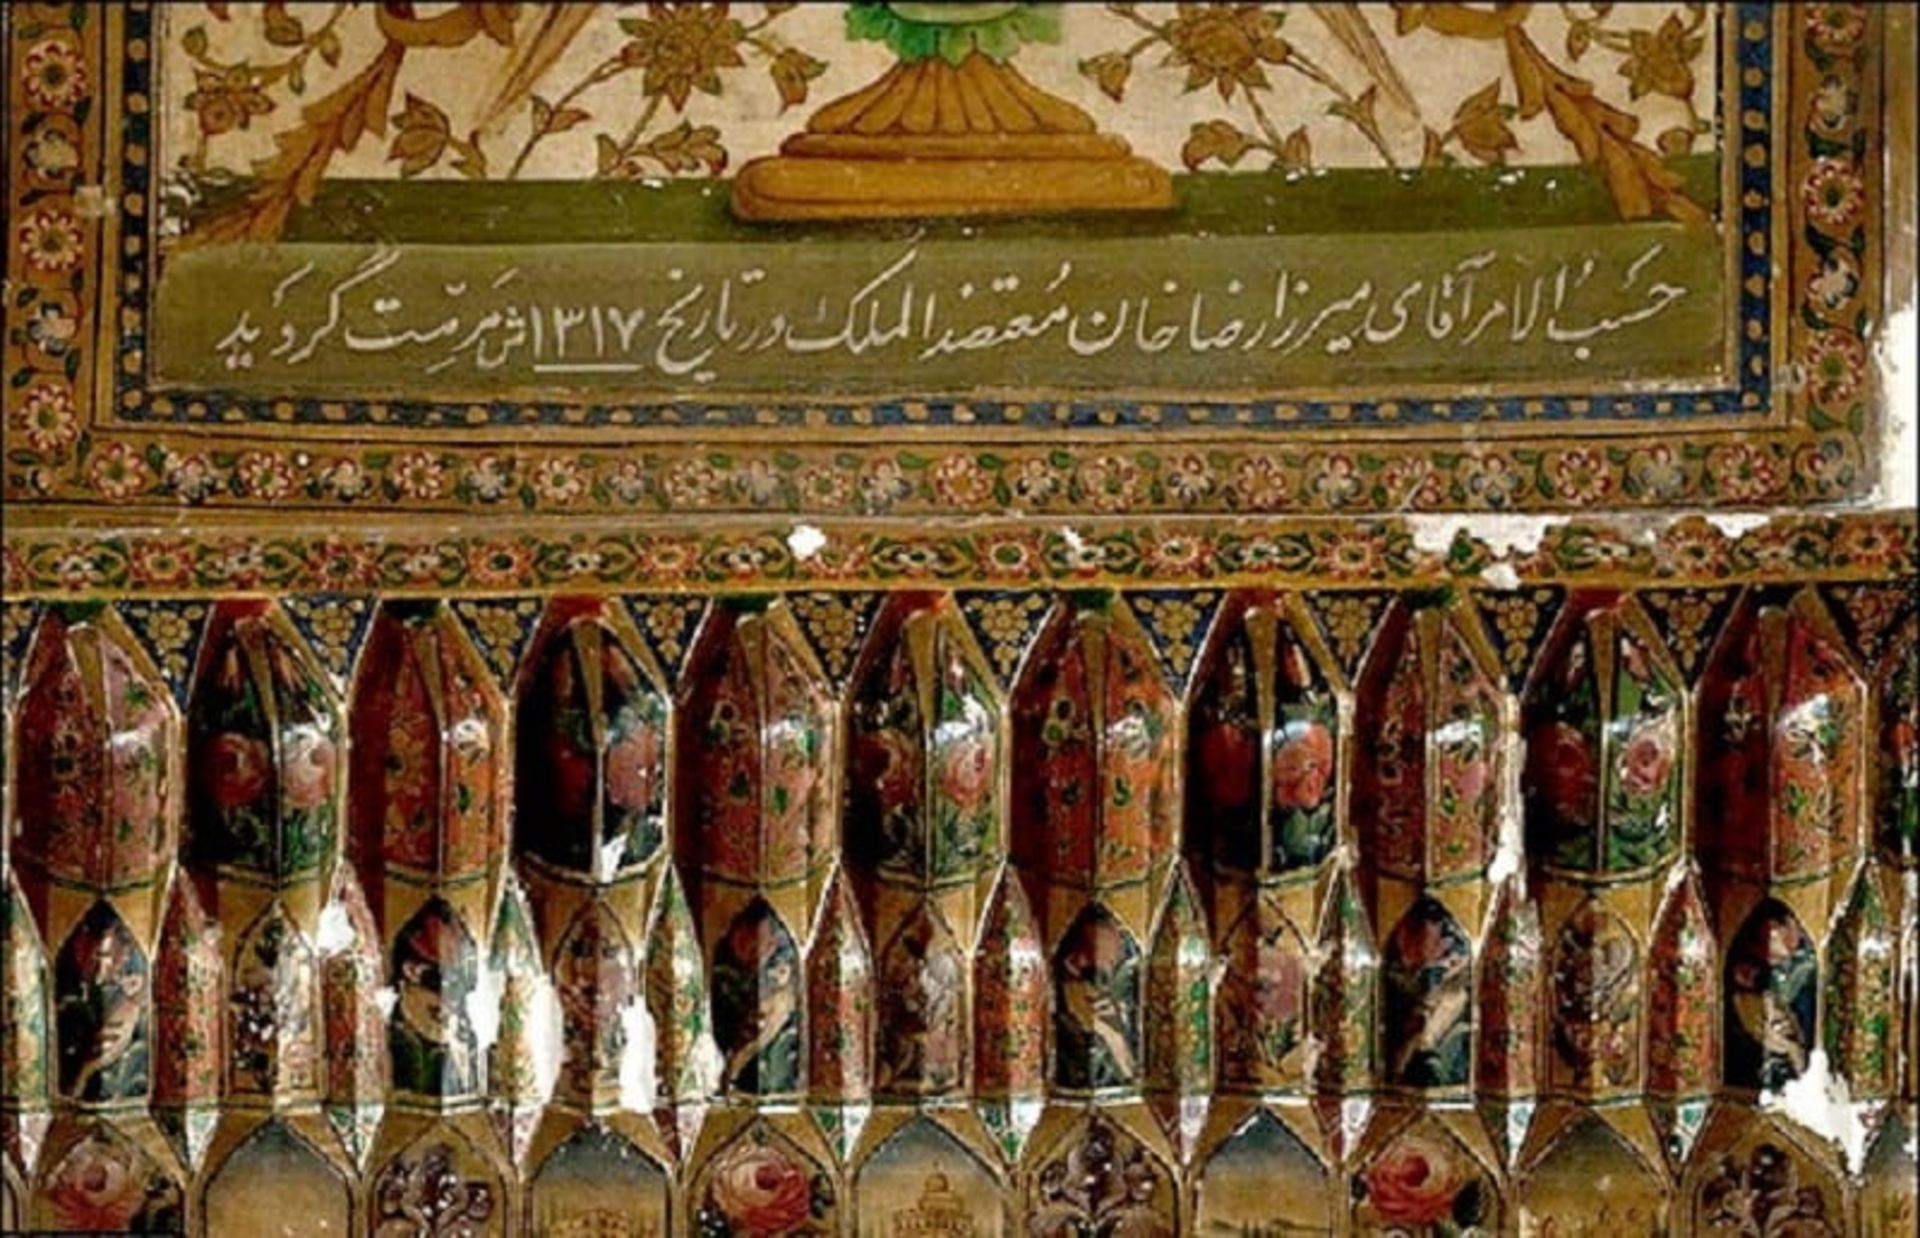 حَسَبُ الامر آقای میرزا رضا خان مُعتضد الملک در تاریخ ۱۳۱۷ ش مَرمّت گردید